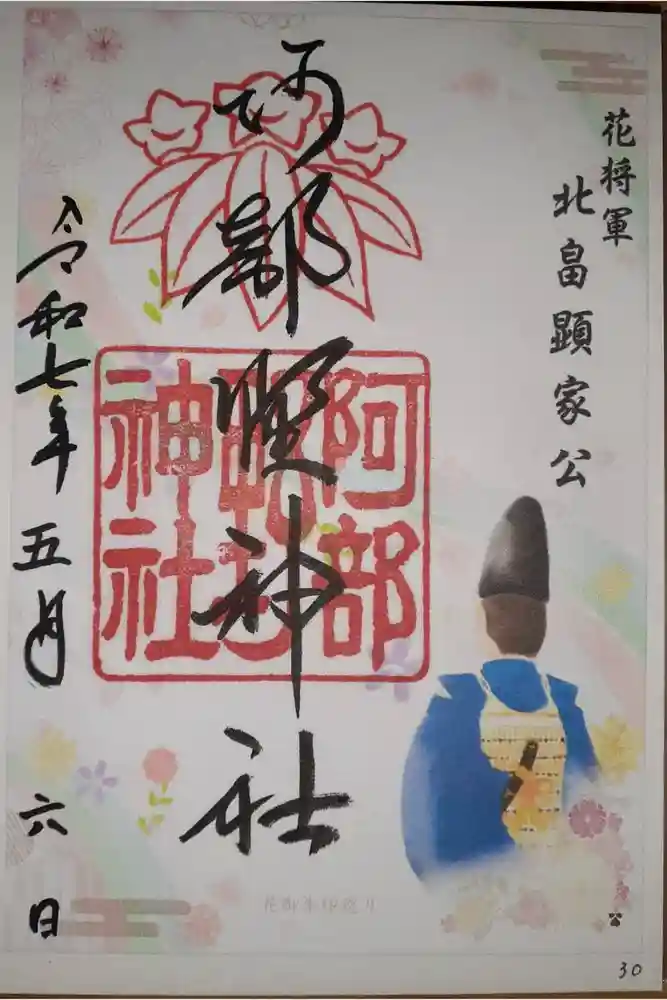 花将軍
北畠顕家公
阿部野神社
阿部野神社
令和七年五月六日
花御朱印巡り
30